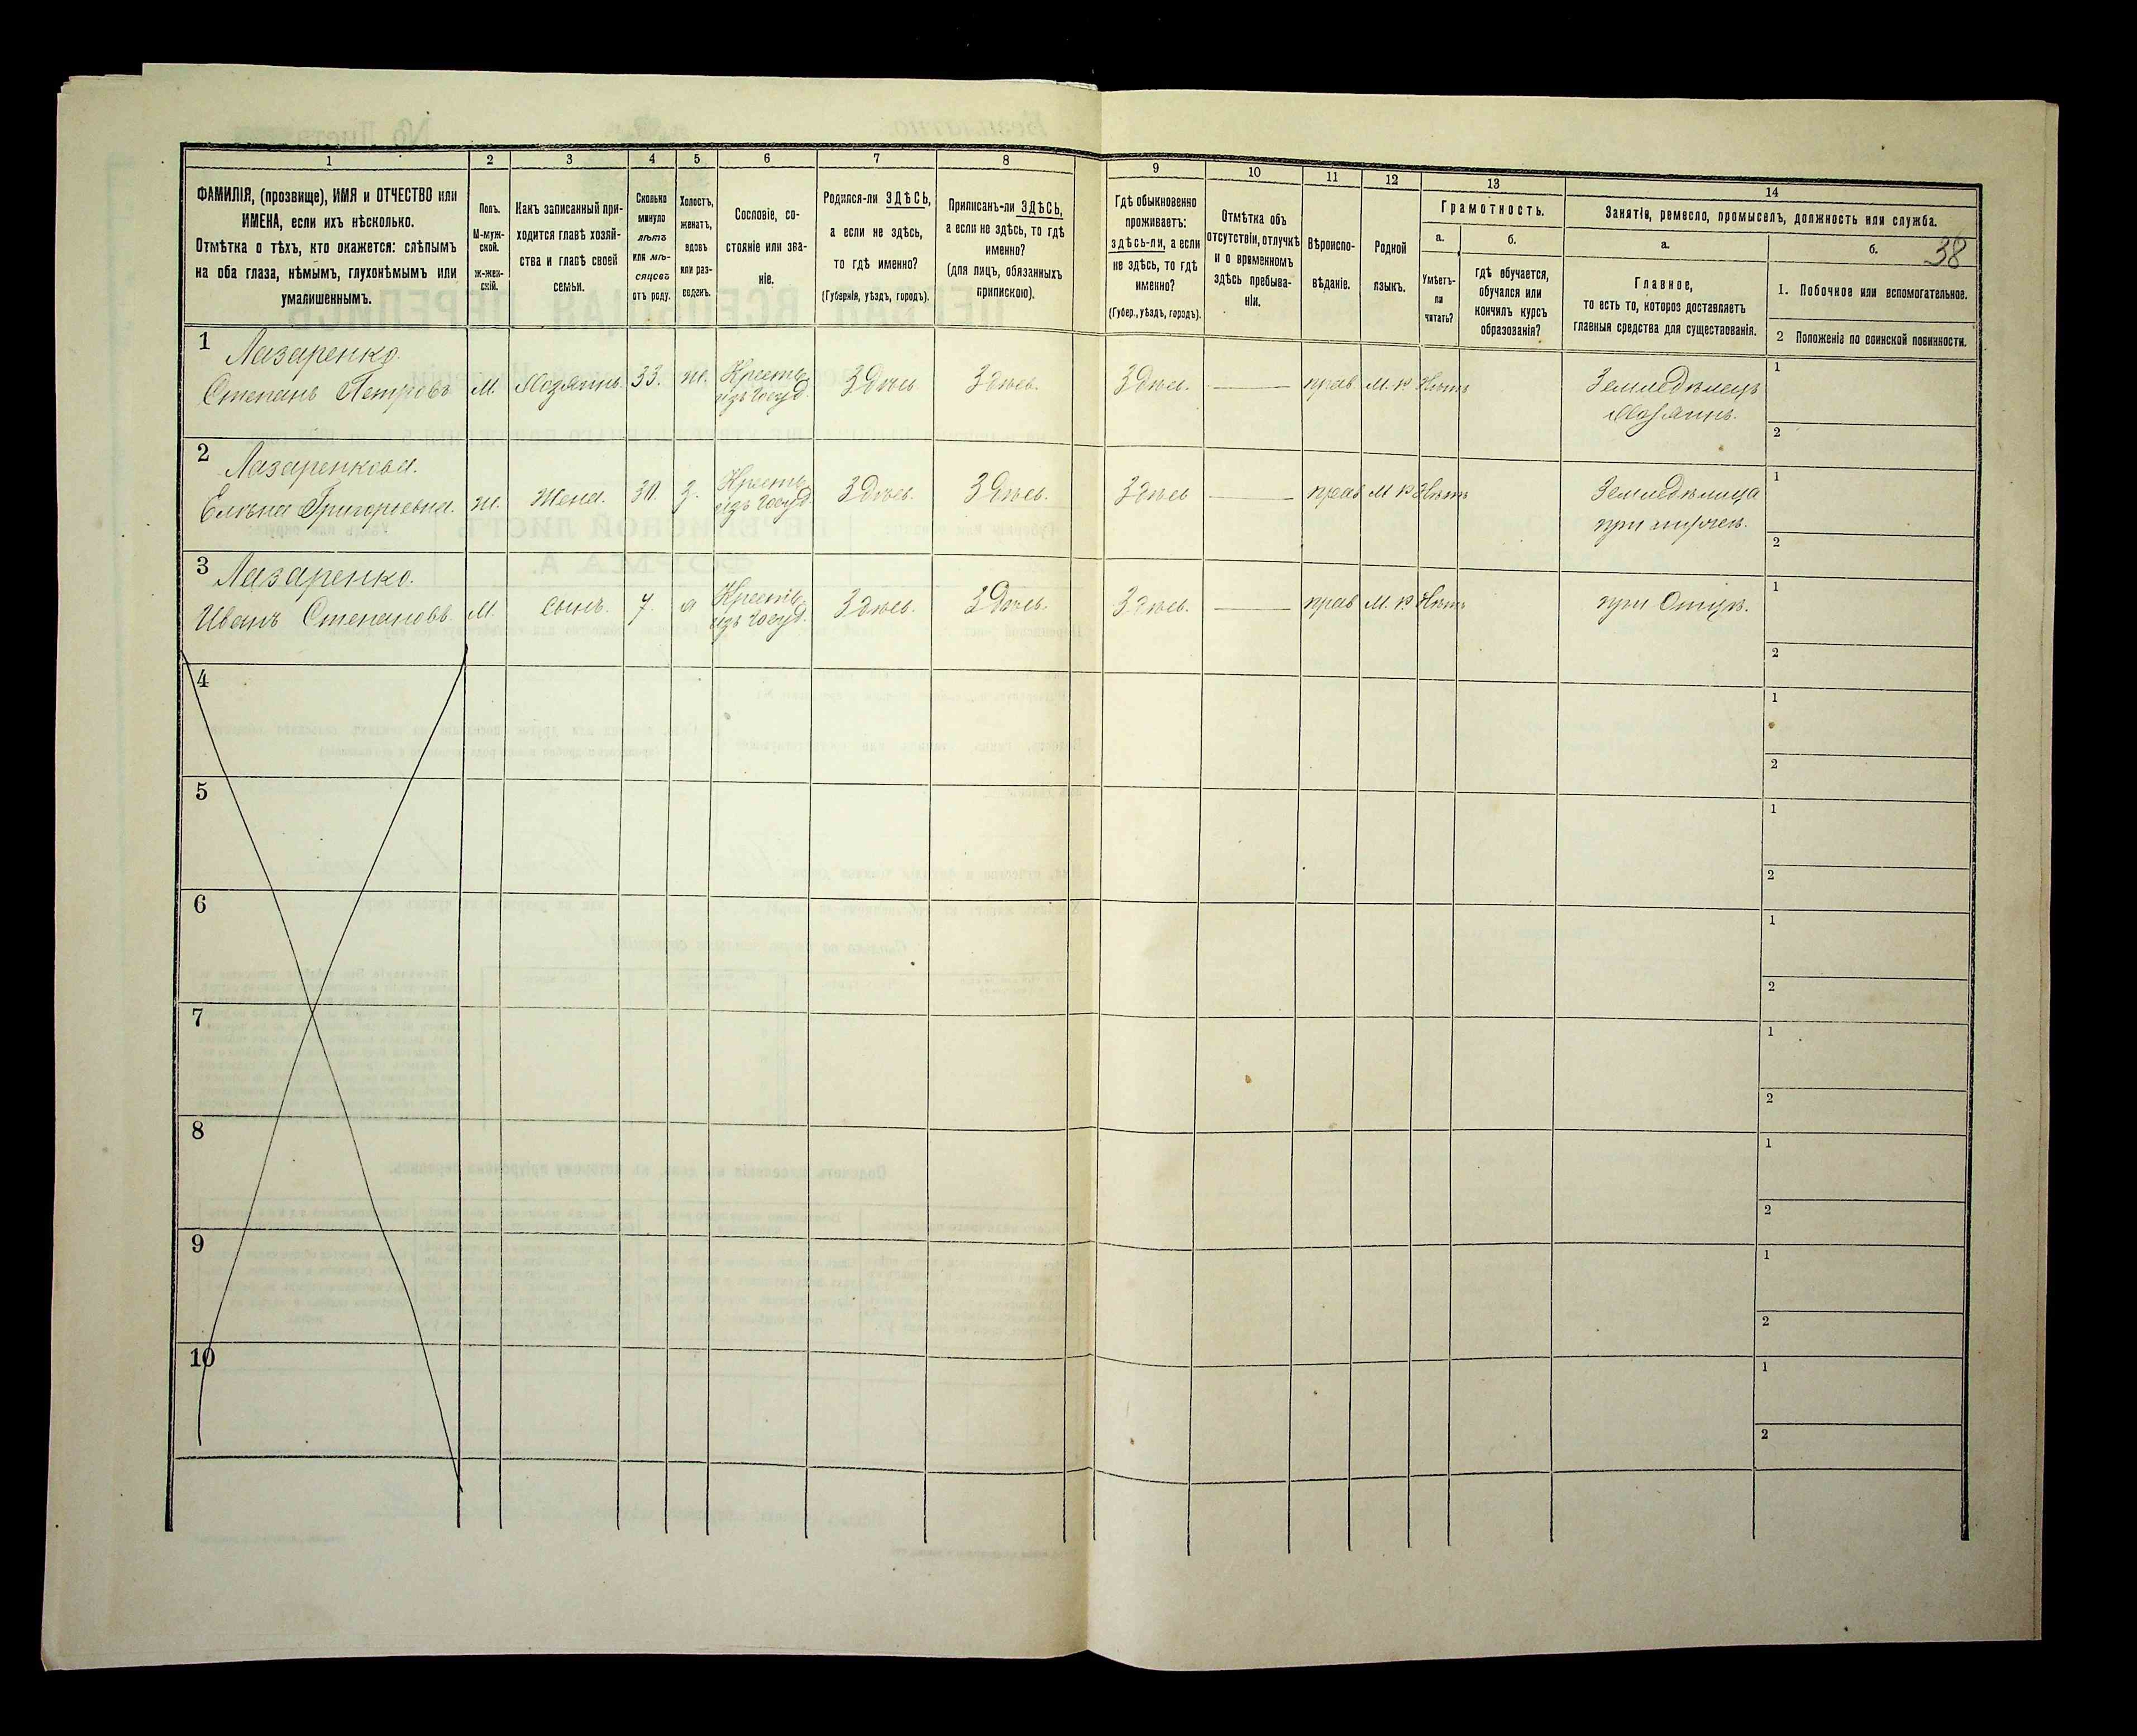 38
1 2 3 4 5 6 7 8 9 10 11 12 13 14
ФАМИЛІЯ, (прозвище), ИМЯ и ОТЧЕСТВО или
ИМЕНА, если ихъ нѣсколько.
Отмѣтка о тѣхъ, кто окажется: слѣпымъ
на оба глаза, нѣмымъ, глухонѣмымъ или
умалишеннымъ.
Полъ.
М-муж-
ской.
ж-жен-
скій.
Какъ записанный при-
ходится главѣ хозяй-
ства и главѣ своей
семьи.
Сколько
минуло
лѣтъ
или мѣ-
сяцевъ
отъ роду.
Холостъ,
женатъ,
вдовъ
или раз-
веденъ.
Сословіе, со-
стояніе или зва-
ніе.
Родился-ли ЗДѢСЬ,
а если не здѣсь,
то гдѣ именно?
(Губернія, уѣздъ, городъ).
Приписанъ-ли ЗДѢСЬ,
а если не здѣсь, то гдѣ
именно?
(для лицъ, обязанныхъ
припискою).
Гдѣ обыкновенно
проживаетъ:
здѣсь-ли, а если
не здѣсь, то гдѣ
именно?
(Губер., уѣздъ, городъ).
Отмѣтка объ
отсутствіи, отлучкѣ
и о временномъ
здѣсь пребыва-
ніи.
Вѣроиспо-
вѣданіе.
Родной
языкъ.
Грамотность.
а.
Умѣетъ-
ли
читать?
б.
гдѣ обучается,
обучался или
кончилъ курсъ
образованія?
Занятія, ремесло, промыселъ, должность или служба.
а.
Главное,
то есть то, которое доставляетъ
главныя средства для существованія.
б.
1. Побочное или вспомогательное.
2 Положеніе по воинской повинности.
1 Лазаренко.
Степанъ Петровъ М. Хозяинъ 33. ж. Крестъ. изъ госуд. Здѣсь Здѣсь. Здѣсь. — прав М. Р Нѣтъ Земледѣлецъ
Хозяинъ.
1
2
2 Лазаренкова.
Елена Григорьевна. ж. Жена. 30. з. Крестъ. изъ госуд. Здѣсь. Здѣсь. Здѣсь — прав М Р Нѣтъ Земледѣлица
при мужѣ.
1
2
3 Лазаренко.
Иванъ Степановъ. М. сынъ. 7. Крестъ. изъ госуд. Здѣсь. Здѣсь. Здѣсь. — прав М. Р Нѣтъ при Отцѣ.
1
2
4
1
2
5
1
2
6
1
2
7
1
2
8
1
2
9
1
2
10
1
2